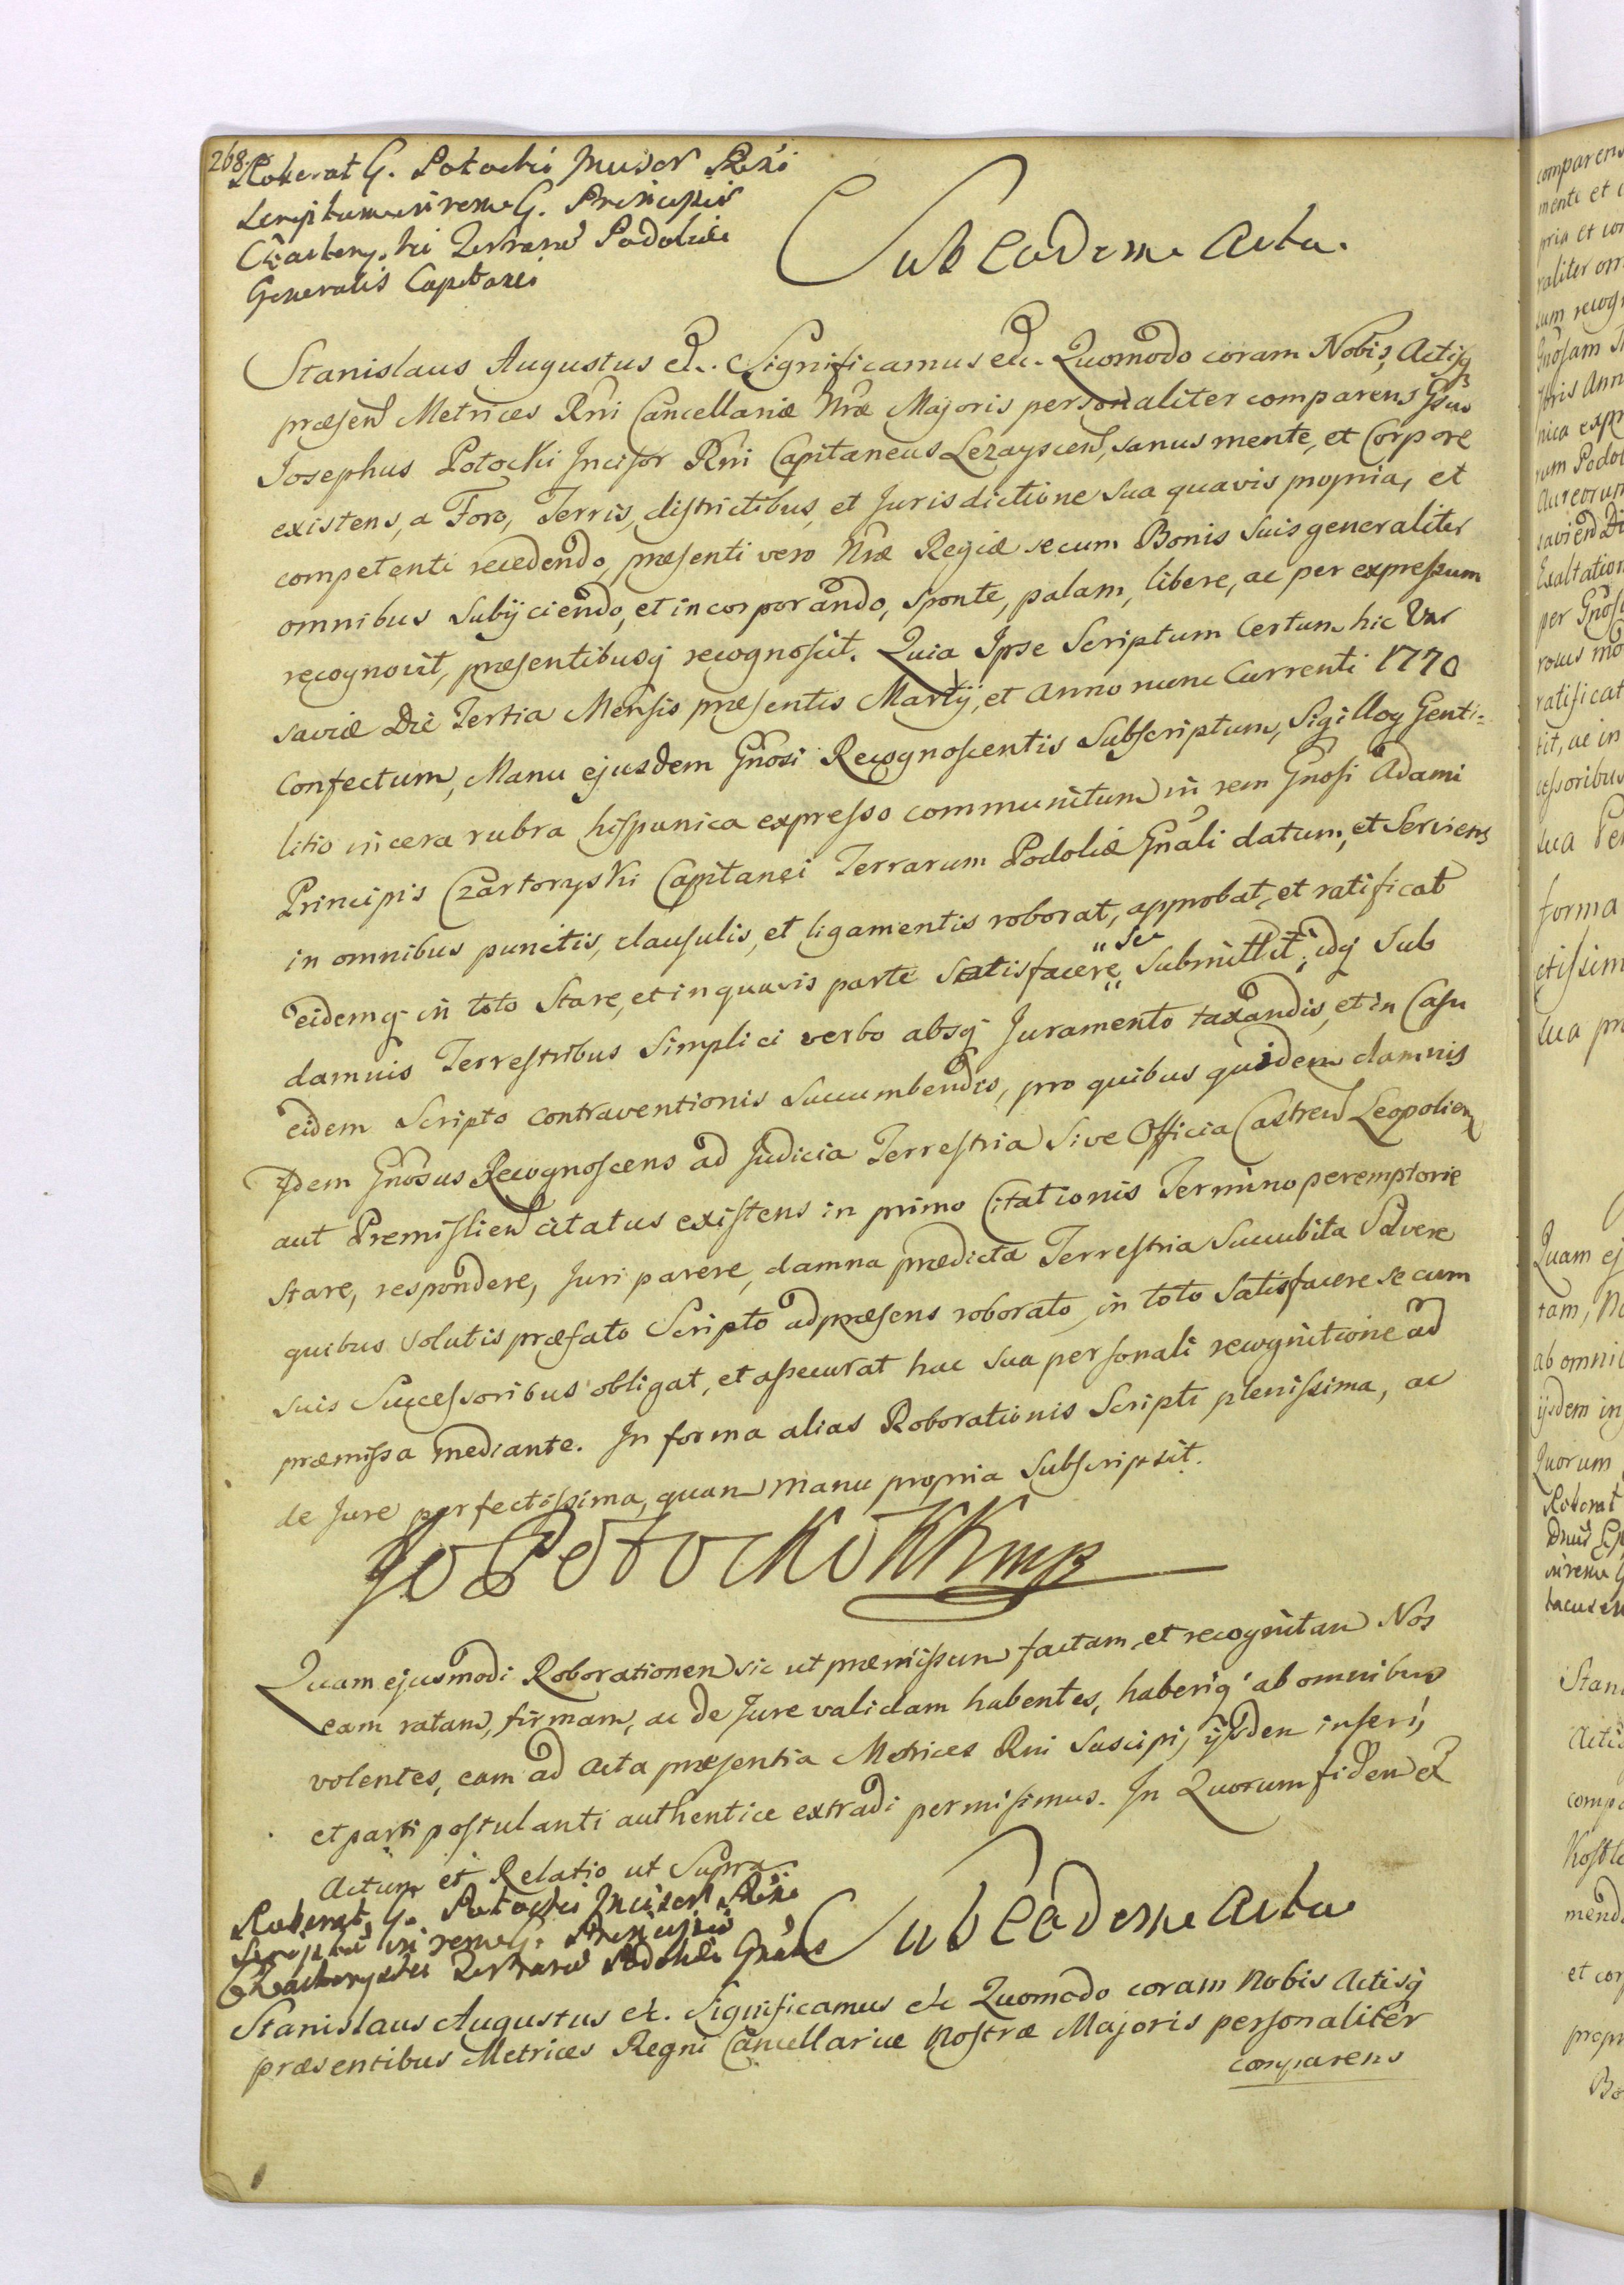 268.
Roborat G. Potocki Incisor Rni
Scriptum in rem G. Principis
Czartoryski Terrarum Podoliæ
Generalis Capitanei
Sub Eadem Acta.
Stanislaus Augustus etc. Significamus etc. Quomodo coram Nobis, Actisq
præsen Metrices Rni Cancellariæ Nræ Majoris personaliter comparens Gsus
Josephus Potocki Incisor Rni Capitaneus Lezayscen, sanus mente, et Corpore
existens, a Foro, Terris, districtibus, et Jurisdictione sua quavis propria, et
competenti recedendo, præsenti vero Nræ Regiæ se cum Bonis suis generaliter
omnibus subijciendo, et incorporando, sponte, palam, libere, ac per expressum
recognovit, præsentibusq recognoscit. Quia Ipse Scriptum Certum hic Var
saviæ Die Tertia Mensis præsentis Martij, et Anno nunc Currenti 1770
Confectum, Manu ejusdem Gnosi Recognoscentis Subscriptum, Sigilloq Genti=
litio in cera rubra hispanica expresso communitum in rem Gnosi Adami
Principis Czartoryski Capitanei Terrarum Podoliæ Gnali datum, et Serviens
in omnibus punctis, clausulis, et ligamentis roborat, approbat, et ratificat
eidemq in toto Stare, et in quavis parte Satisfacere " se " submittit; idq sub
damnis Terrestribus Simplici verbo absq Juramento taxandis, et in Casu
eidem Scripto contraventionis succumbendis, pro quibus quidem damnis
Idem Gnosus Recognoscens ad Judicia Terrestria Sive Officia Castren Leopolien
aut Premislien citatus existens in primo Citationis Termino peremptorie
stare, respondere, Juri parere, damna prædicta Terrestria succubita Solvere
quibus solutis præfato Scripto ad præsens roborato, in toto Satisfacere se cum
suis Successoribus obligat, et assecurat hac sua personali recognitione ad
præmissa mediante. In forma alias Roborationis Scripti plenissima, ac
de Jure perfectissima, quam manu propria Subscripsit.
Jo Potocki KKmp
Quam ejusmodi Roborationem sic ut præmissum factam, et recognitam Nos
eam ratam, firmam, ac de Jure validam habentes, haberiq ab omnibus
volentes, eam ad Acta præsentia Metrices Rni Suscipi, ijsdem inseri,
et parti postulanti authentice extradi permisimus. In Quorum fidem et
Actum et Relatio ut Supra
Roborat G. Potocki Incisor Rni
Scriptum in rem G. Principis
Czartoryski Terrarum Podoliæ Gnalis
Sub Eadem Acta
Stanislaus Augustus etc. Significamus etc Quomodo coram Nobis Actisq
præsentibus Metrices Regni Cancellariæ Nostræ Majoris personaliter
comparens